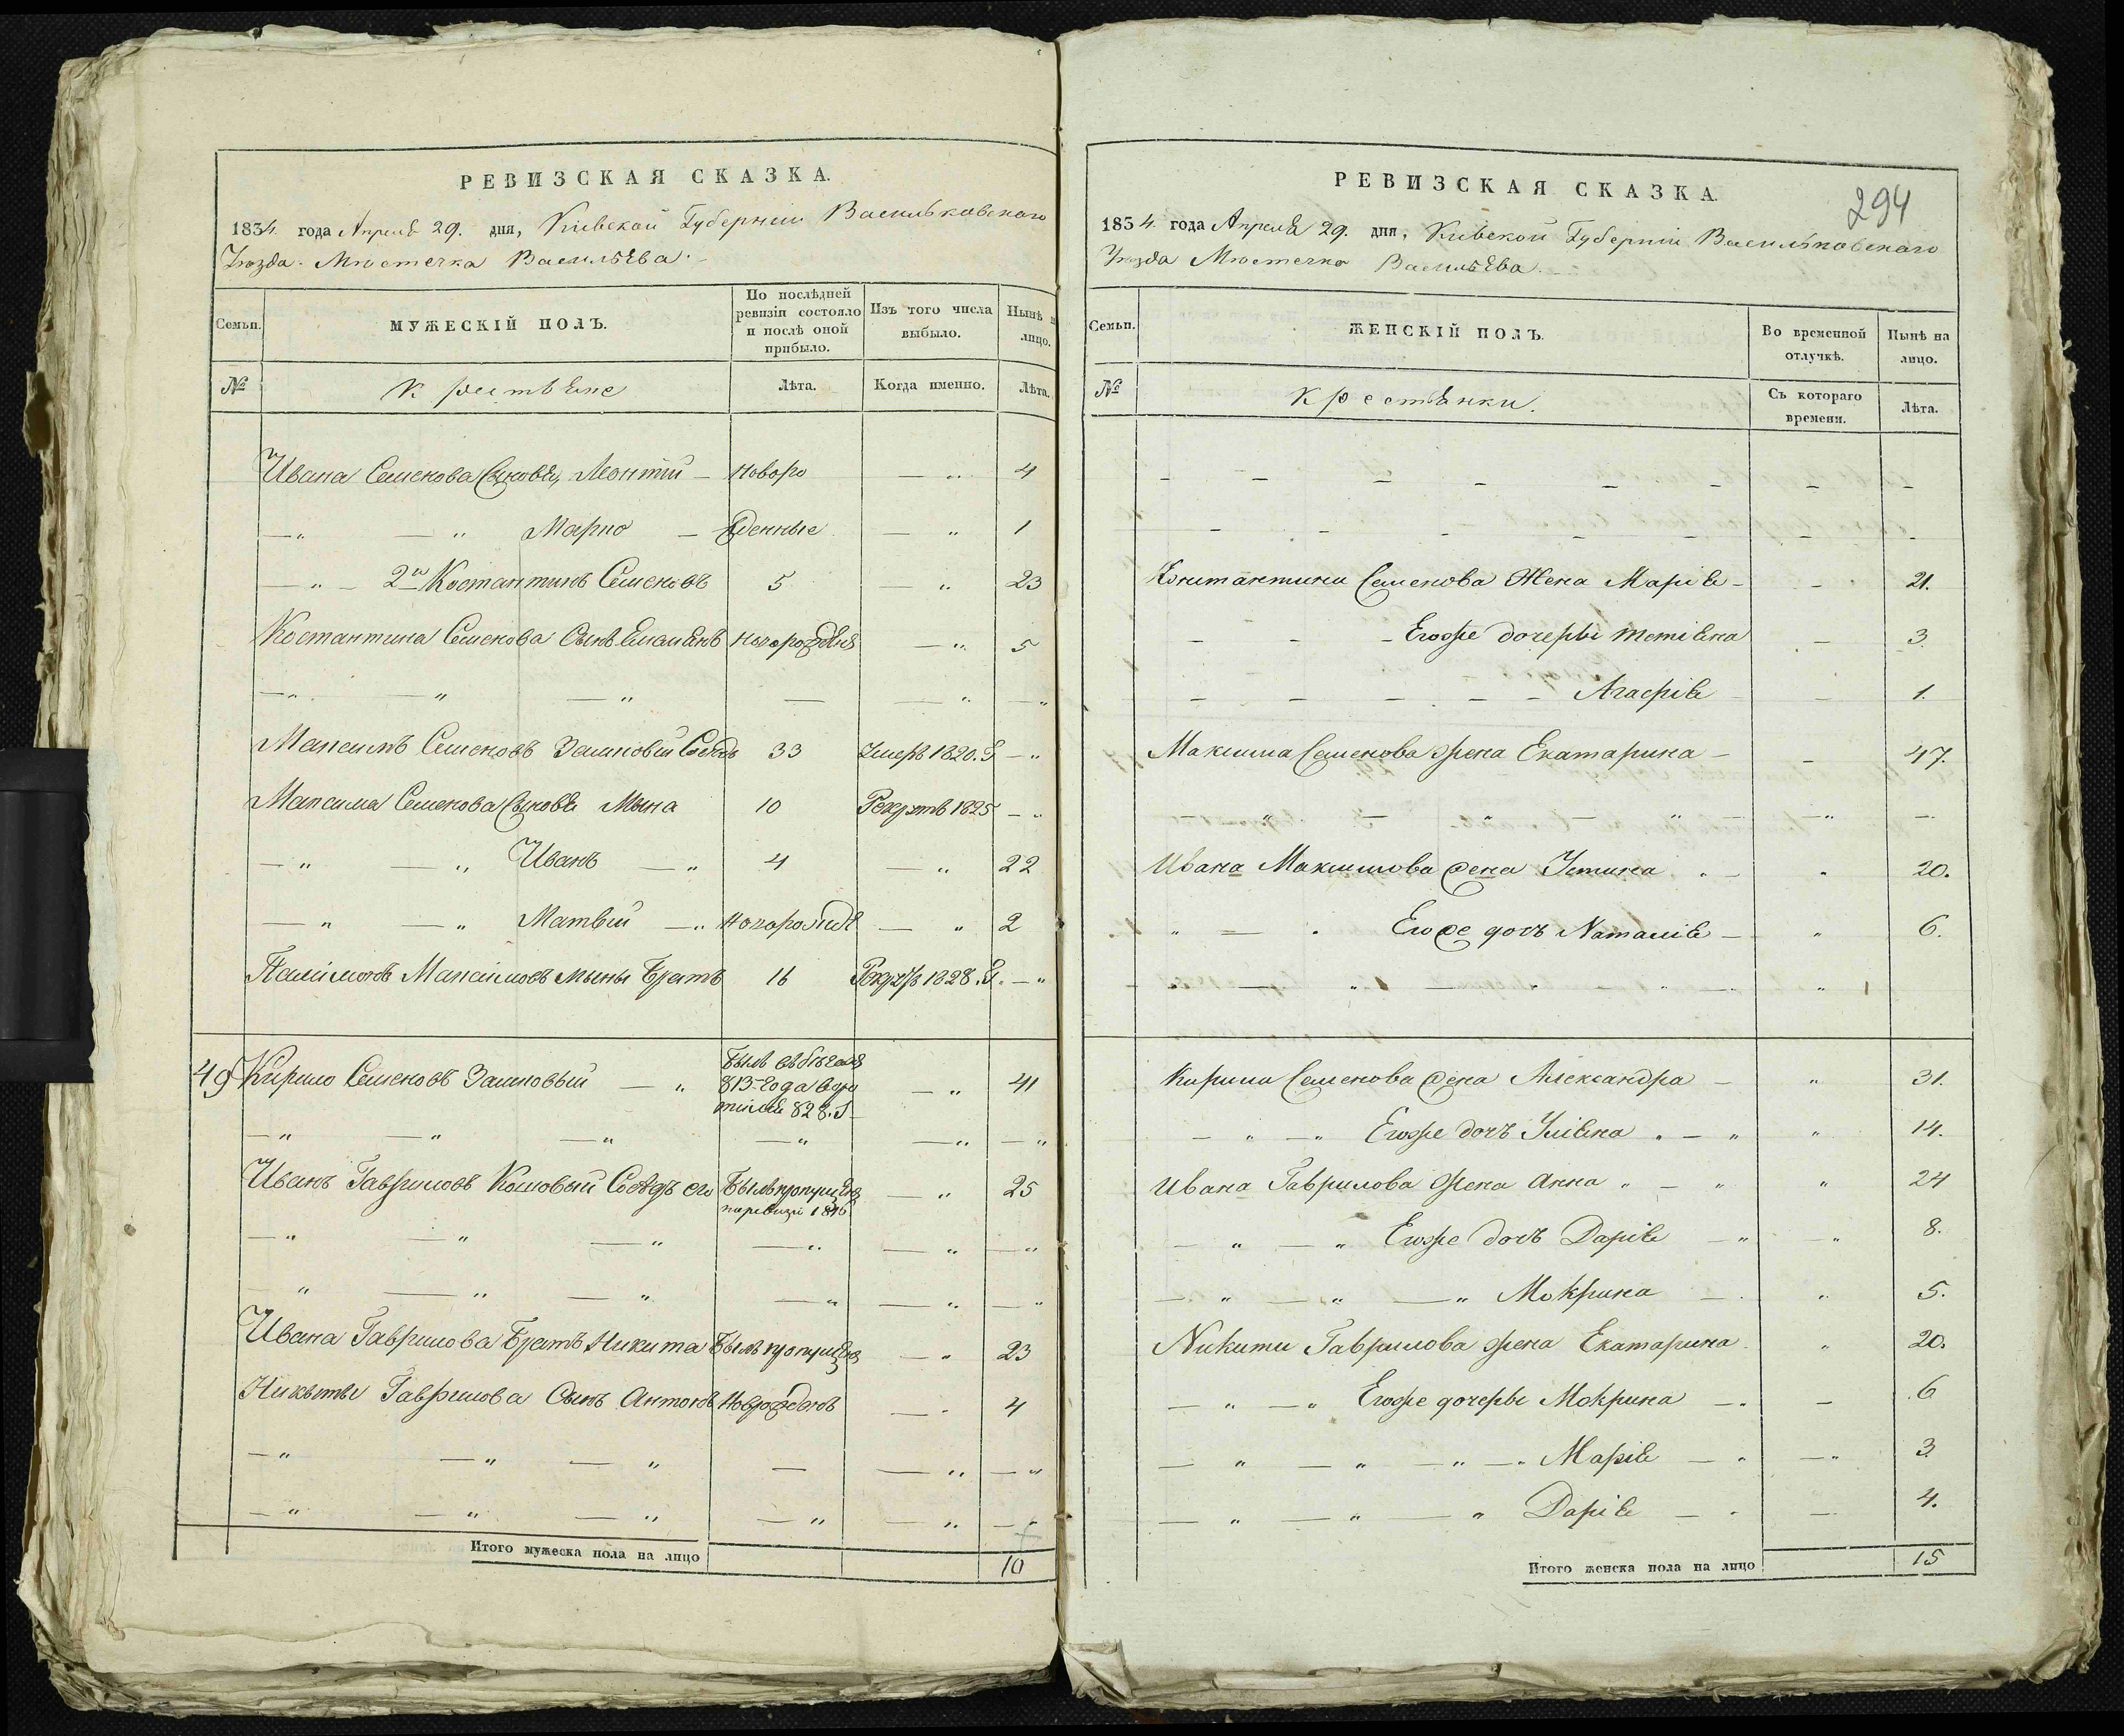 РЕВИЗСКАЯ СКАЗКА.
1834. года Апреля 29. дня, Кіевской Губерніи Васильковскаго
Уѣзда. Мѣстечка Васильева.
Семьи. МУЖЕСКІЙ ПОЛЪ. По послѣдней ревизіи состояло и послѣ оной прибыло. Изъ того числа выбыло. Нынѣ на лицо.
№ Крестьяне Лѣта. Когда именно. Лѣта.
Ивана Семенова Сыновья, Леонтій – Новоро — „ 4
— „ — „ Марко – жденные — „ 1
— „ – 2й Костантинъ Семеновъ 5 „ 23
Костантина Семенова Сынъ Емельянъ Новорожден — „ 5
— „ — „ — „ — — „ — „
Максимъ Семеновъ Сосѣдъ 33 Умеръ 1820. Г — „
Максима Семенова Сыновья Мына 10 Рекрутъ 1825 — „
— „ — „ Иванъ — „ 4 — „ 22
— „ — „ Матвій — „ Новорожд — „ 2
Максімовъ Мыны Братъ 16 1828. Г. — „
49 Кирило Семеновъ — „ Былъ въ бѣгахъ 813 года 828. Г — „ 41
— „ — „ — „ — „ — „ — „
Иванъ Гавриловъ Кошовый Сосѣдъ его Былъ пропущен по ревизіи 1816 — „ 25
— „ — „ — „ — „ — „ — „
— „ — „ — „ — „ — „ — „
Ивана Гаврилова Братъ Никита Былъ пропущен — „ 23
Никиты Гаврилова Сынъ Антонъ Новорожденъ — „ 4
— „ — „ — „ — — „ — „
— „ — „ — „ — „ — „ — „
Итого мужеска пола на лицо 10
294
РЕВИЗСКАЯ СКАЗКА.
1834. года Апреля 29. дня, Кіевской Губерніи Васильковскаго
Уѣзда Мѣстечка Васильева.
Семьи. ЖЕНСКІЙ ПОЛЪ. Во временной отлучкѣ. Нынѣ на лицо.
№ Крестьянки. Съ котораго времени. Лѣта.
– – – – – – – –
– – – – – – –
Константина Семенова Жена Марія – – 21.
– – – Егоже дочеры Тетіяна – 3.
– – – – – – Агафія – – 1.
Максима Семенова жена Екатарина – – 47.
– „ — „ — „ — „ —
Ивана Максимова жена Устина „ – „ 20.
„ — „ Егоже дочъ Наталія – „ 6.
— „ — „ „ — „
Кирила Семенова жена Александра – „ 31.
– „ – „ Егоже дочъ Уліяна „ – „ „ 14.
Ивана Гаврилова жена Анна „ – „ „ 24
— „ — „ Егоже дочъ Дарія – „ – „ 8.
— „ — „ — „ Мокрина — „ 5.
Никити Гаврилова жена Екатарина „ 20.
— „ — „ Егоже дочеры Мокрина – „ – 6
— „ — „ – „ – „ Марія — „ — „ 3.
— „ — „ — „ Дарія — „ — 4.
Итого женска пола на лицо 15